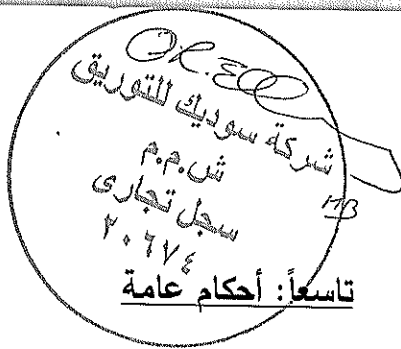 شركة سوديك للتوريق
ش.م.م
سجل تجارى
٢٠٦٧٤
تاسعاً: أحكام عامة